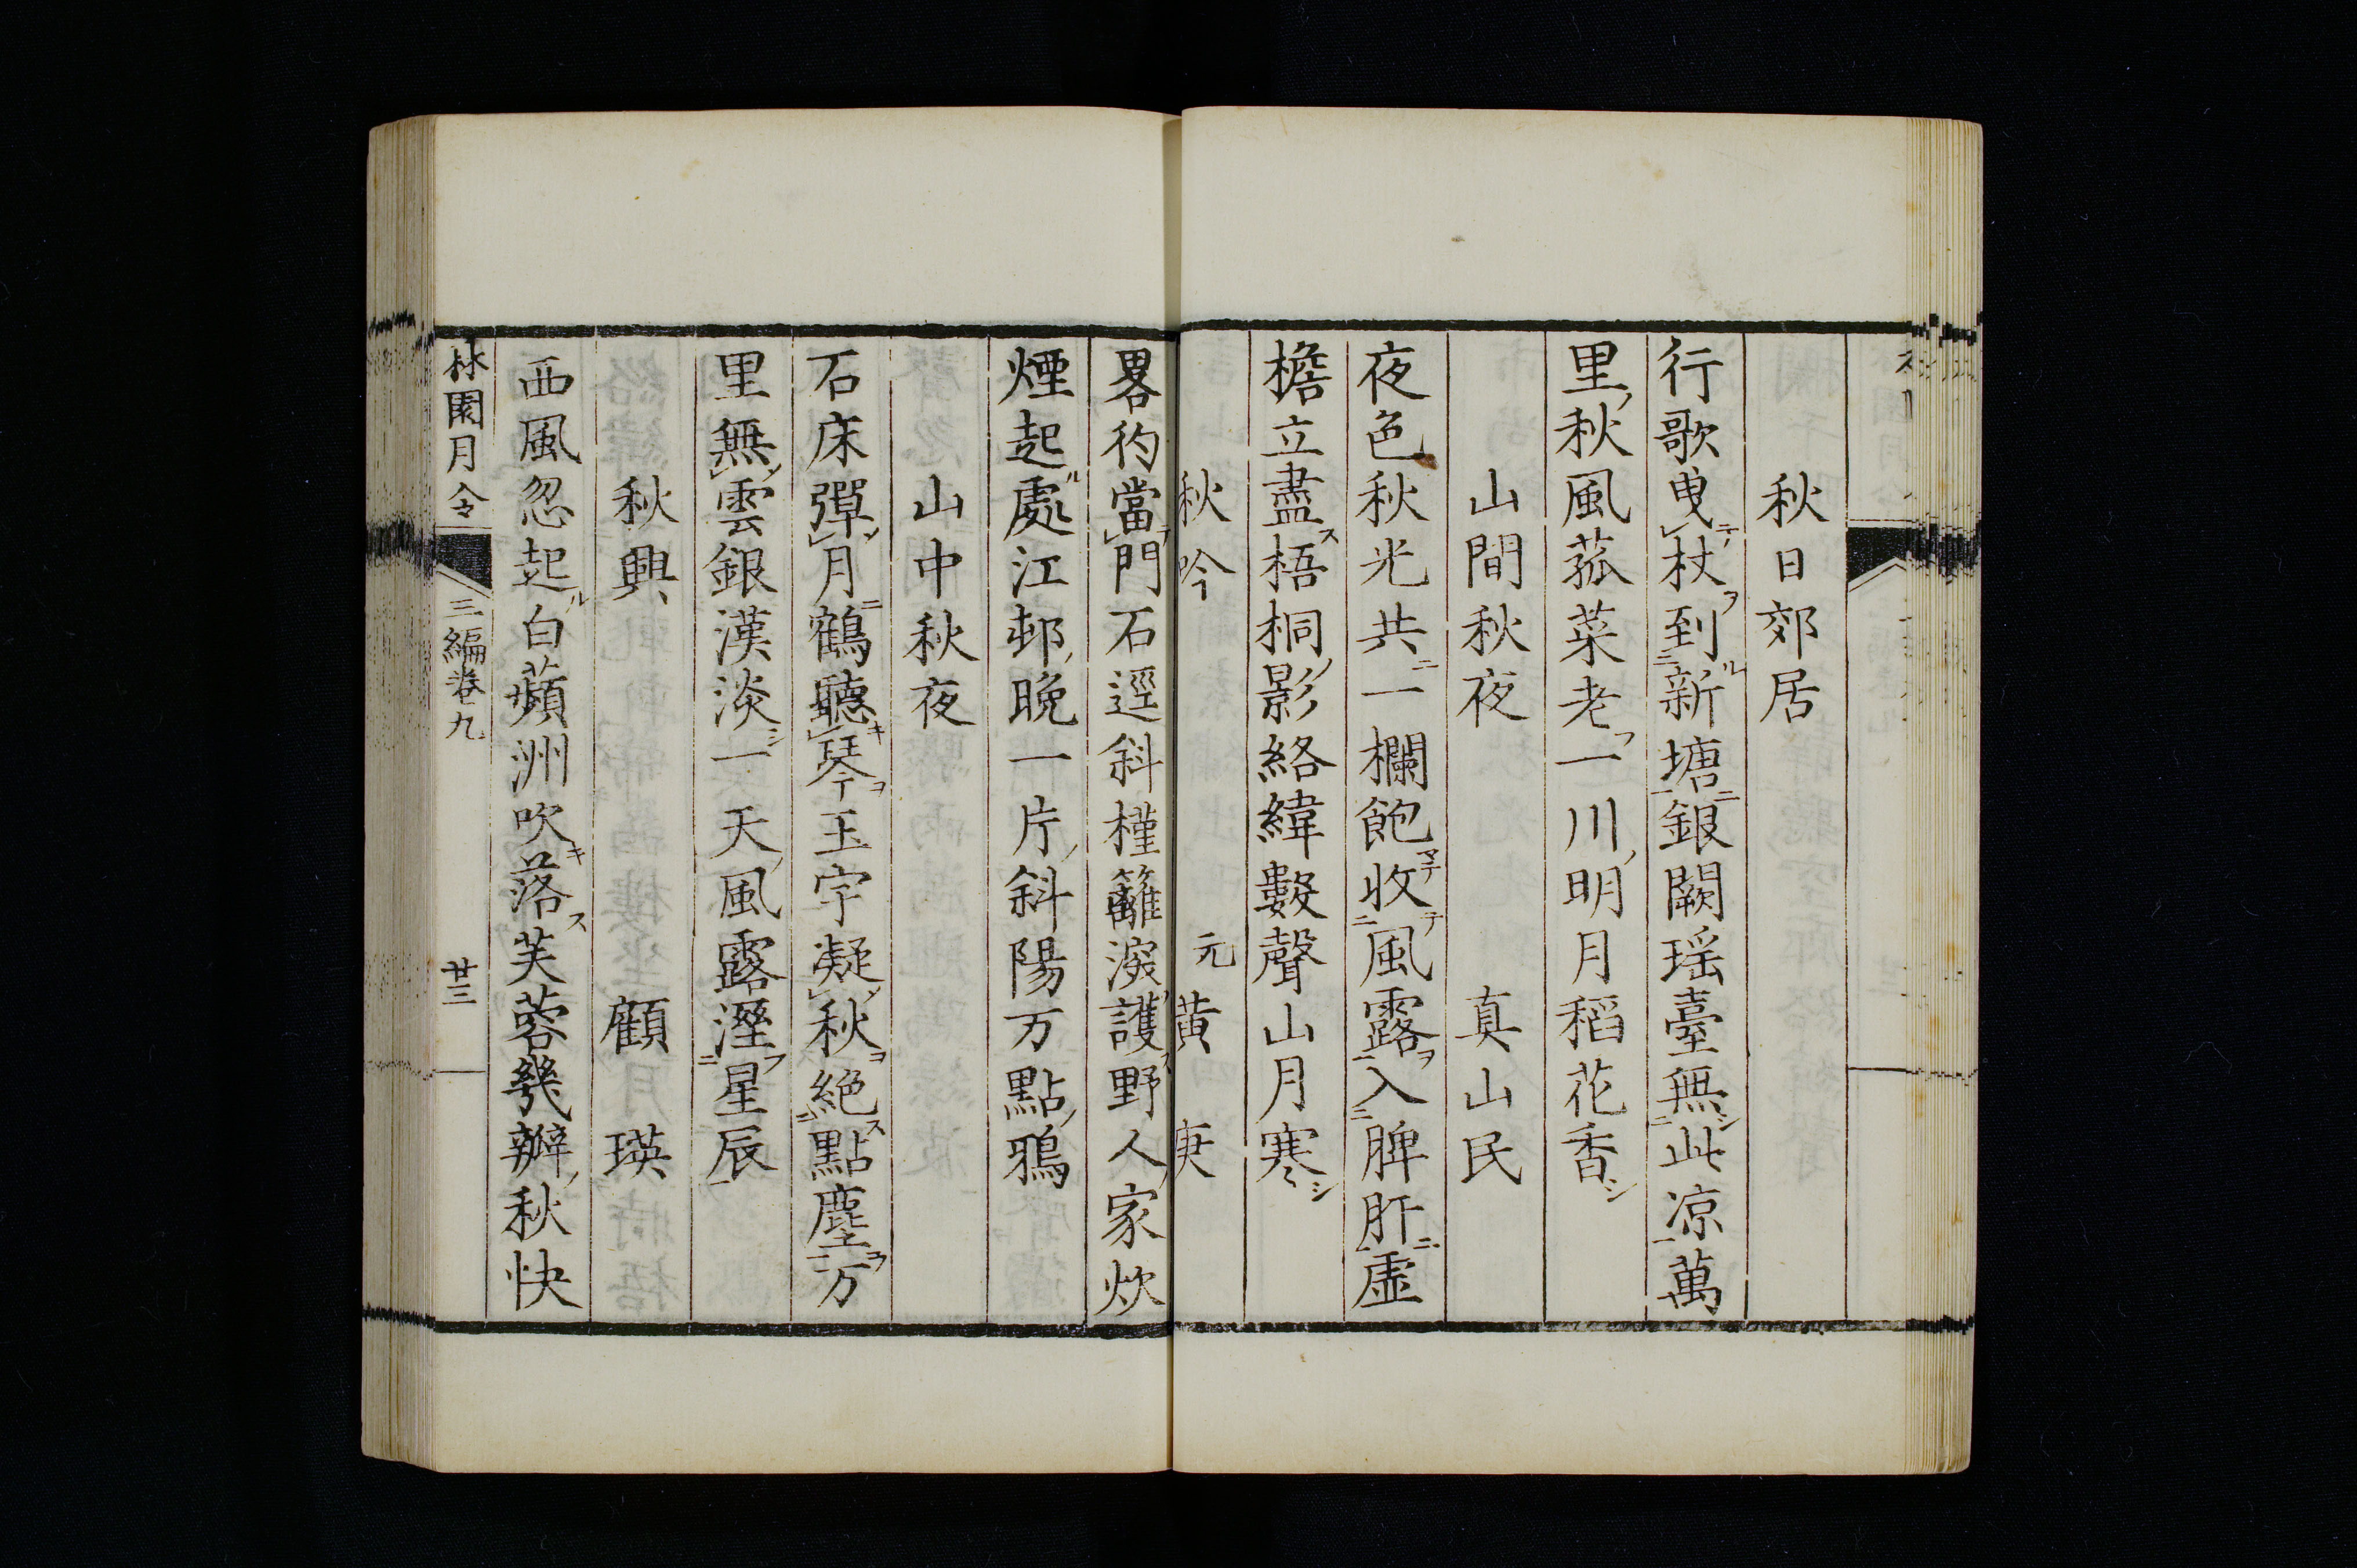 秋日郊居
行歌曳杖到新塘銀闕瑶臺無此凉萬
里秋風菰菜老一川明月稻花香
山間秋夜 真山民
夜色秋光共一欄飽收風露入脾肝虚
檐立盡梧桐影絡緯數聲山月寒
秋吟 元 黄庚
畧彴當門石逕斜槿籬深護野人家炊
煙起處江邨晚一片斜陽万點鴉
山中秋夜
石床彈月鶴聽琴玉宇凝秋絶點塵万
里無雲銀漢淡一天風露溼星辰
秋興 顧瑛
西風忽起白蘋洲吹落芙蓉幾瓣秋快
林園月令 三編卷九 廿三